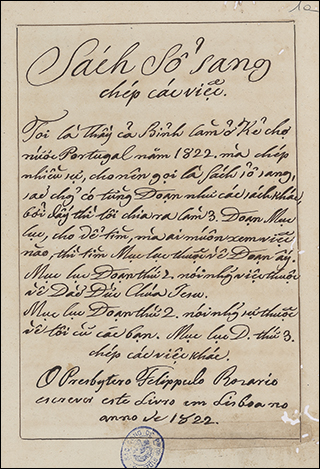 1a
Sách Sổ sang
chép các việc.
Tôi là thầy cả Bỉnh làm ở Kẻ chợ
nước Portugal năm 1822. mà chép
nhiều sự, cho nên gọi là Sách sổ sang,
vì có từng Đoạn như các sách khác,
bởi đấy thì tôi chia ra làm 3. Đoạn Muc
luc, cho dễ tìm, mà ai muốn xem việc
nào, thì tìm Muc luc thuộc về Đoạn ấy.
Muc luc Đoạn thứ 1. nói những việc thuộc
về Dàò Đức Chúa Jesu.
Muc luc Đoạn thứ 2. nói những sự thuộc
về tôi cũ các bạn. Muc luc D. thứ 3.
chép các việc khác.
O Presbytero Felippe do Rosario
escreveo este Livro em Lisboa no
anno de 1822.